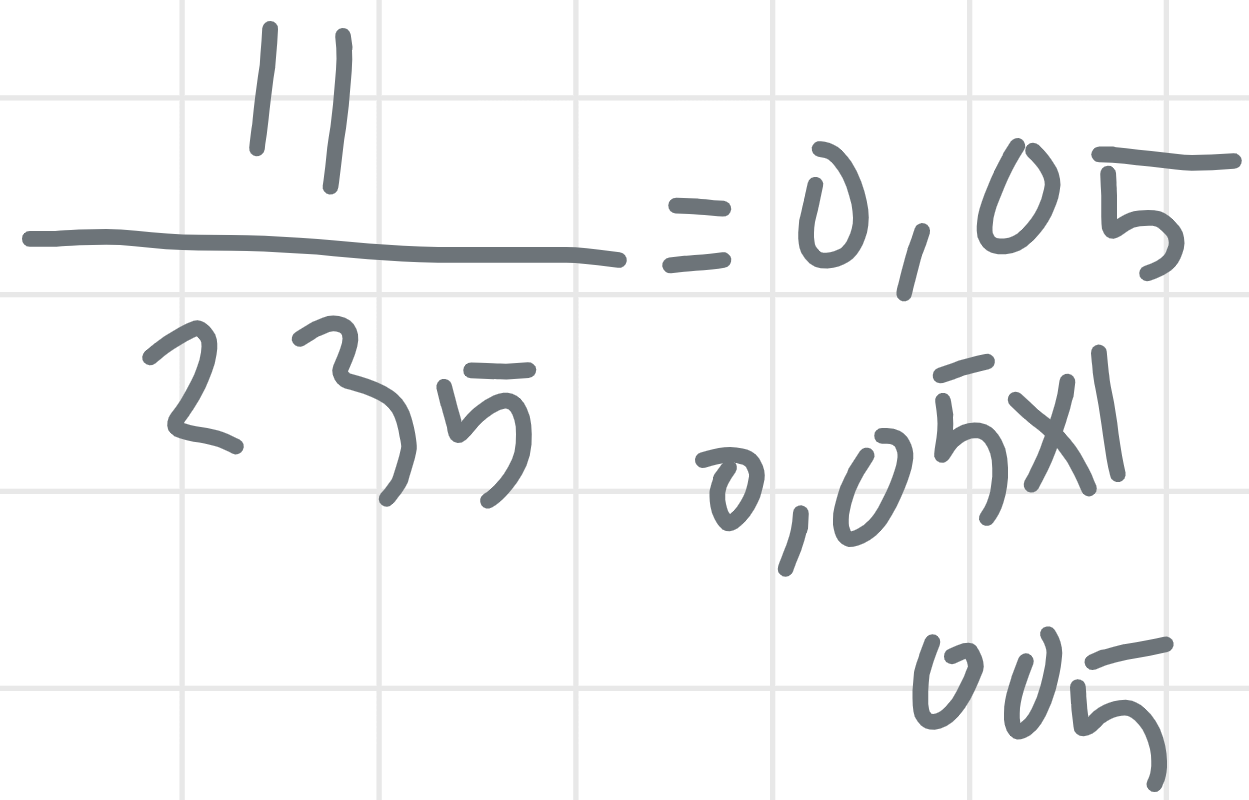 11
235 = 0,05
0,05x1
005